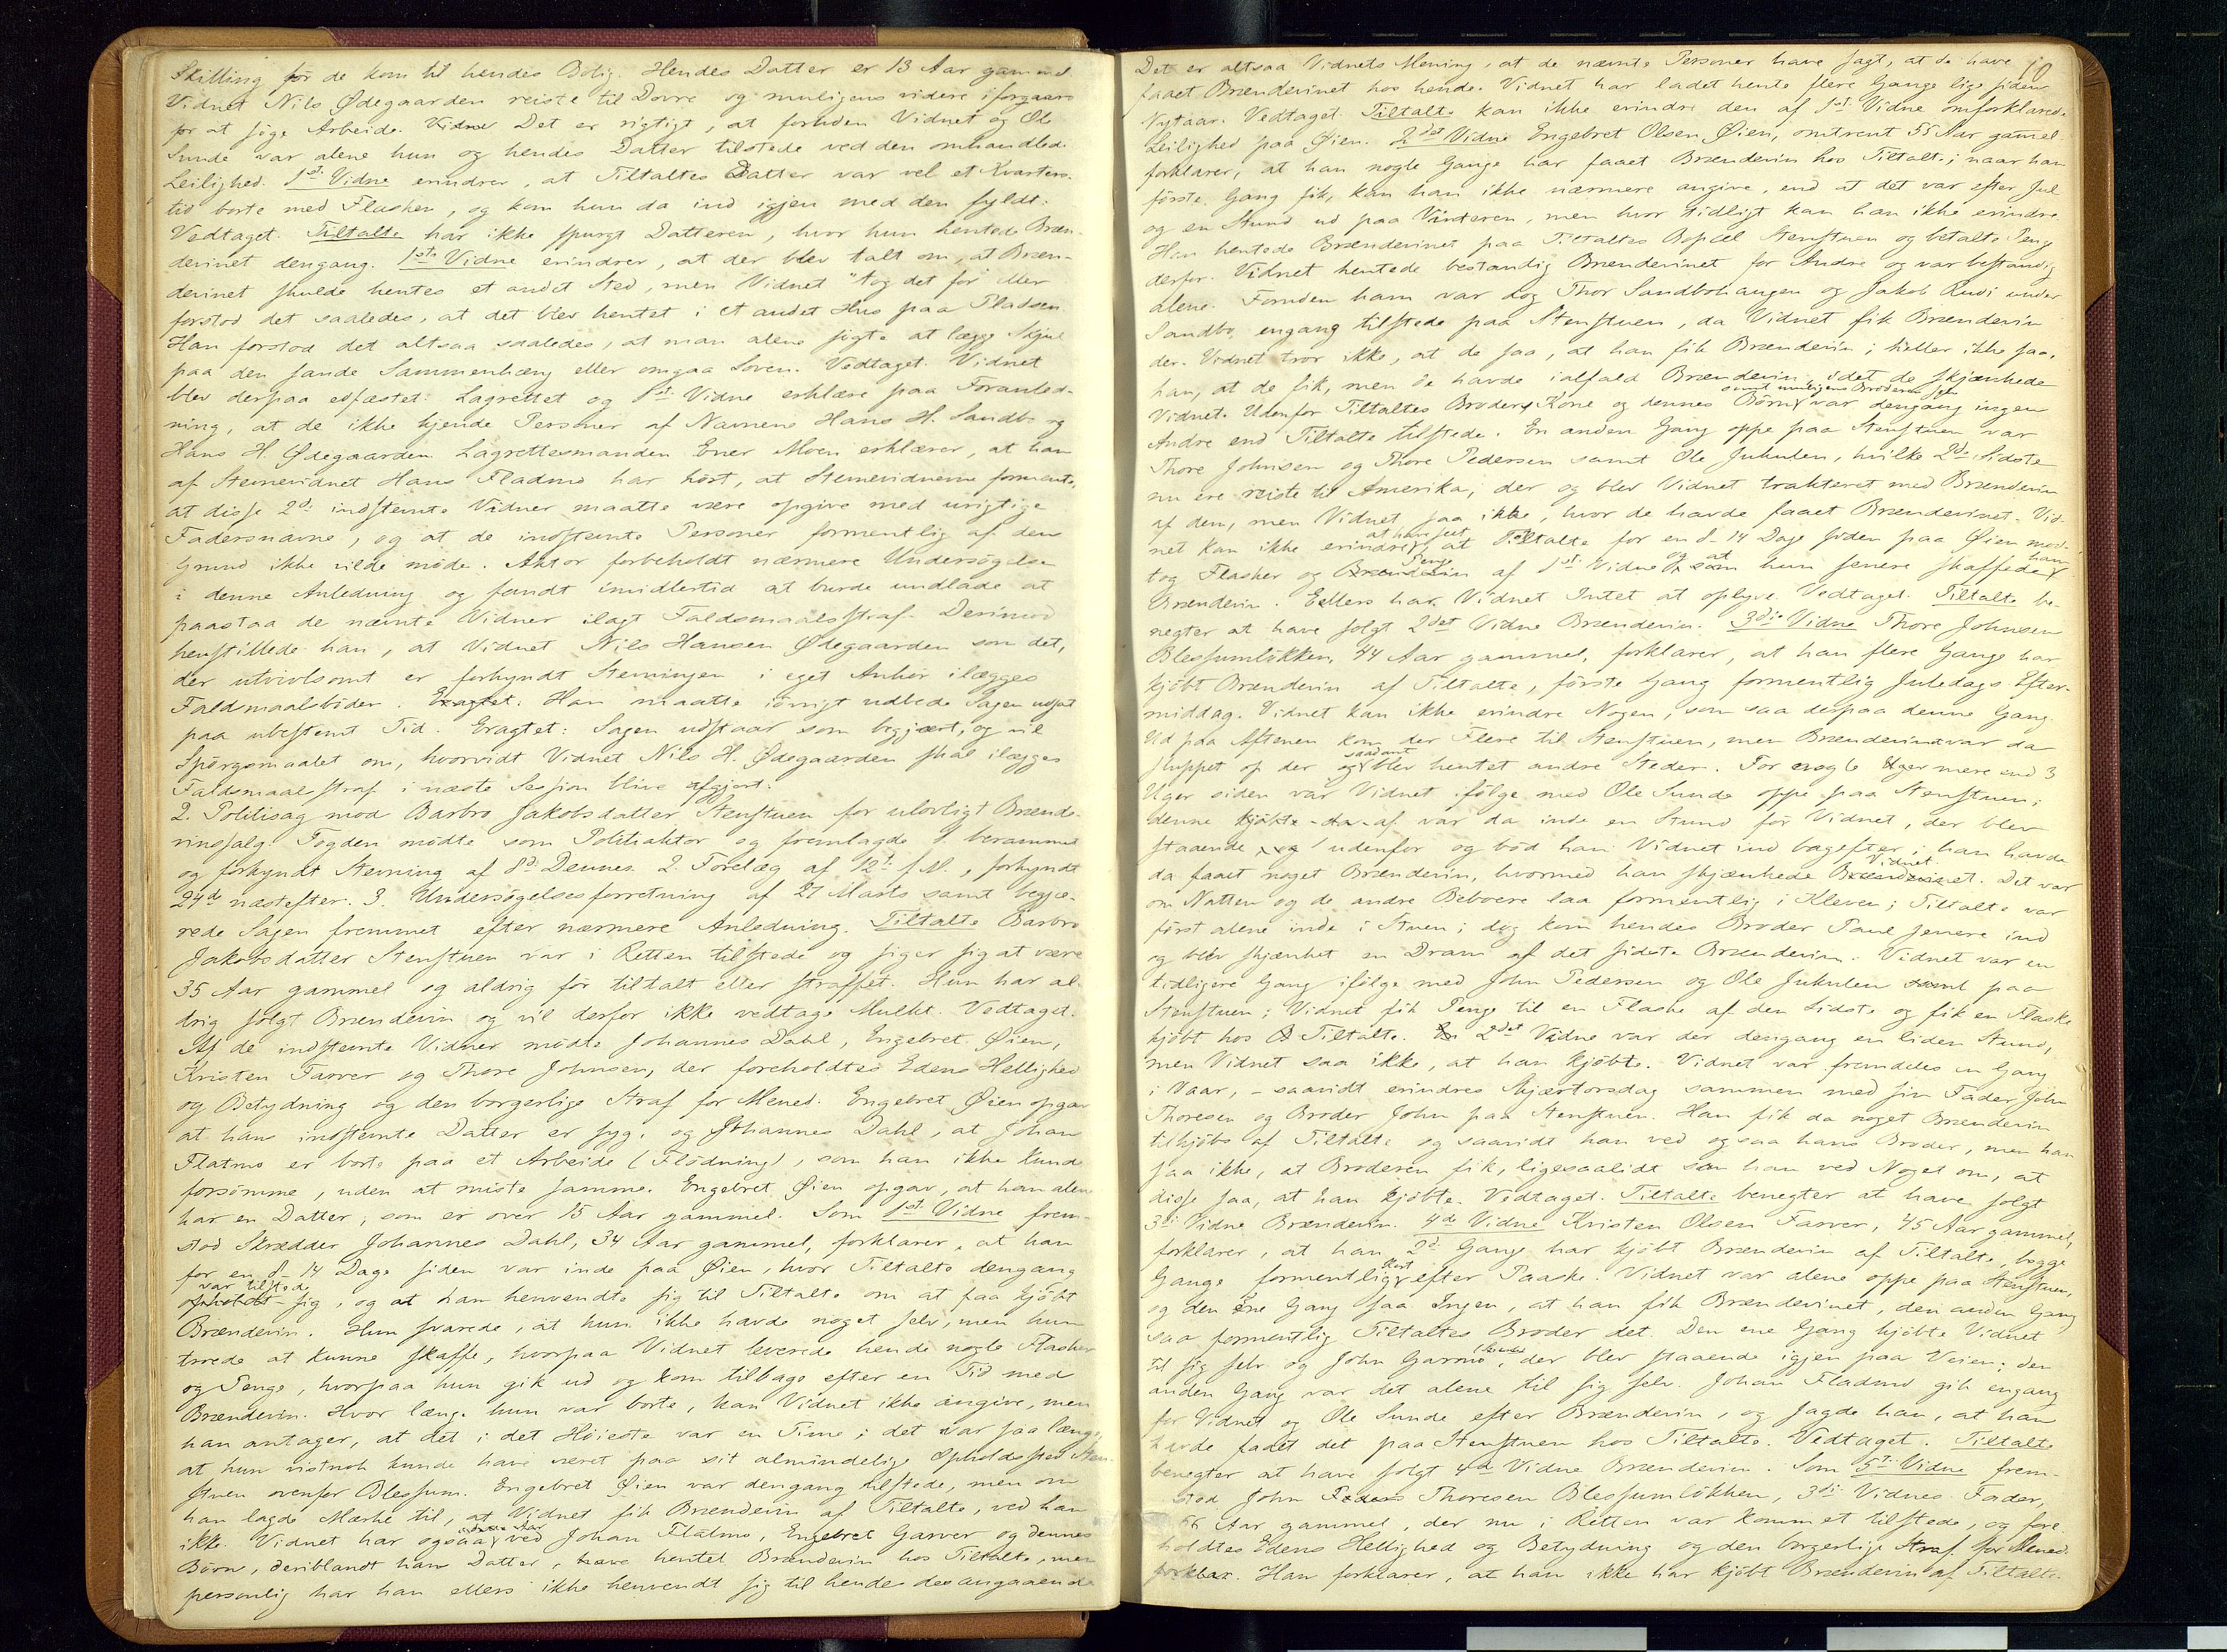 Skilling før de kom til hendes Bolig. Hendes Datter er 13 Aar gammel.
Vidnet Nils Ødegaarden reiste til Dovre og muligens videre iforgaars
for at søge Arbeide. Vidne Det er rigtigt, at foruden Vidnet og Ole
Sunde var alene hun og hendes Datter tilstede ved den omhandlede
Leilighed. 1ste Vidne erindrer, at Tiltaltes Datter var vel et Kvarters-
tid borte med Flasken, og kom hun da ind igjen med den fyldt.
Vedtaget. Tiltalte har ikke spurgt Datteren, hvor hun hentede Bræn-
devinet dengang. 1ste Vidne erindrer, at der blev talt om, at Bræn-
devinet skulde hentes et andet Sted, men Vidnet "tog det for" eller
forstod det saaledes, at det blev hentet i et andet Hus paa Pladsen.
Han forstod det altsaa saaledes, at man alene søgte at lægge Skjul
paa den sande Sammenhæng eller omgaa Loven. Vedtaget. Vidnet
blev derpaa edfæstet. Lagrettet og 1ste Vidne erklære paa Foranled-
ning, at de ikke kjende Personer af Navnene Hans H. Sandbo og
Hans H. Ødegaarden. Lagrettesmanden Ener Moen erklærer, at han
af Stevnevidnet Hans Fladmo har hørt, at Stevnevidnerne formente,
at disse 2de indstevnte Vidner maatte være opgivne med urigtige
Fadersnavne, og at de indstevnte Personer formentlig af den
Grund ikke vilde møde. Aktor forbeholdt nærmere Undersøgelse
i denne Anledning og fandt imidlertid at burde undlade at
paastaa de nævnte Vidner ilagt Faldsmaalsstraf. Derimod
henstillede han, at Vidnet Nils Hansen Ødegaarden som det,
der utvivlsomt er forkyndt Stevningen i eget Anhør ilægges
Faldmaalsbøder. Eragtet: Han maatte iøvrigt udbede Sagen udsat
paa ubestemt Tid. Eragtet: Sagen udstaar som begjært, og vil
Spørgsmaalet om, hvorvidt Vidnet Nils H. Ødegaarden skal ilægges
Faldsmaalsstraf i næste Session blive afgjort.
2. Politisag mod Barbro Jakobsdatter Stenstuen for ulovligt Brænde-
vinssalg. Fogden mødte som Politiaktor og fremlagde 1. berammet
og forkyndt Stevning af 8de Dennes. 2. Forelæg af 12te f.M., forkyndt
24de næstefter. 3. Undersøgelsesforretning af 27 Marts samt begjæ-
rede Sagen fremmet efter nærmere Anledning. Tiltalte Barbro
Jakobsdatter Stenstuen var i Retten tilstede og siger sig at være
35 Aar gammel og aldrig før tiltalt eller straffet. Hun har al-
drig solgt Brændevin og vil derfor ikke vedtage Mulkt. Vedtaget.
Af de indstevnte Vidner mødte Johannes Dahl, Engebret Øien,
Kristen Farver og Thore Johnsen, der foreholdtes Edens Hellighed
og Betydning og den borgerlige Straf for Mened. Engebret Øien opgav
at hans indstevnte Datter er syg, og Johannes Dahl, at Johan
Flatmo er borte paa et Arbeide (Flødning), som han ikke kunde
forsømme, uden at miste samme. Engebret Øien opgav, at han alene
har en Datter, som er over 15 Aar gammel. Som 1ste Vidne frem-
stod Skrædder Johannes Dahl, 34 Aar gammel, forklarer, at han
for en 8-14 Dage siden var inde paa Øien, hvor Tiltalte dengang
var tilstede
opholdt sig, og at han henvendte sig til Tiltalte om at faa kjøbt
Brændevin. Hun svarede, at hun ikke havde noget selv, men hun
troede at kunne skaffe, hvorpaa Vidnet leverede hende nogle Flasker
og Penge, hvorpaa hun gik ud og kom tilbage efter en Tid med
Brændevin. Hvor længe hun var borte, kan Vidnet ikke angive, men
han antager, at det i det Høieste var en Time; det var saa længe,
at hun vistnok kunde have været paa sit almindelige Opholdssted Sten-
stuen ovenfor Blessum. Engebret Øien var dengang tilstede, men om
han lagde Mærke til, at Vidnet fik Brændevin af Tiltalte, ved han
ikke. Vidnet har ogsaa ved Johan Flatmo, Engebret Garver og dennes
Børn, deriblandt han Datter, have hentet Brændevin hos Tiltalte, men
personlig har han ellers ikke henvendt sig til hende desangaaende.
10
Det er altsaa Vidnets Mening, at de nævnte Personer have sagt, at de have
faaet Brændevinet hos hende. Vidnet har ladet hente flere Gange lige siden
Nytaar. Vedtaget. Tiltalte kan ikke erindre den af 1ste Vidne omforklarede
Leilighed paa Øien. 2det Vidne Engebret Olsen Øien, omtrent 55 Aar gammel
forklarer, at han nogle Gange har faaet Brændevin hos Tiltalte; naar han
første Gang fik, kan han ikke nærmere angive, end at det var efter Jul
og en Stund ud paa Vinteren, men hvor tidligt kan han ikke erindre.
Han hentede Brændevinet paa Tiltaltes Bopæl Stenstuen og betalte Penge
derfor. Vidnet hentede bestandig Brændevinet for Andre og var bestandig
alene. Foruden ham var dog Thor Sandbohaugen og Jakob Rudi under
Sandbo engang tilstede paa Stenstuen, da Vidnet fik Brændevin
der. Vidnet tror ikke, at de saa, at han fik Brændevin; heller ikke saa
han, at de fik, men de havde ialfald Brændevin, idet de skjænkede
samt muligens Broderen selv
Vidnet. Udenfor Tiltaltes Broders Kone og dennes Børn var dengang ingen
Andre end Tiltalte tilstede. En anden Gang oppe paa Stenstuen var
Thore Johnsen og Thore Pedersen samt Ole Jukulen, hvilke 2de Sidste
nu ere reiste til Amerika, der og blev Vidnet trakteret med Brændevin
af den, men Vidnet saa ikke, hvor de havde faaet Brændevinet. Vid-
at have seet
net kan ikke erindre, at Tiltalte for en 8-14 Dage siden paa Øien mod-
Penge og at ham
tog Flasker og Brændevin af 1ste Vidne som hun senere skaffede
Brændevin. Ellers har Vidnet Intet at oplyse. Vedtaget. Tiltalte be-
negter at have solgt 2det Vidne Brændevin. 3die Vidne Thore Johnsen
Blessumløkken, 44 Aar gammel, forklarer, at han flere Gange har
kjøbt Brændevin af Tiltalte, første Gang formentlig Juledags Efter-
middag. Vidnet kan ikke erindre Nogen, som saa derpaa denne Gang.
Ud paa Aftenen kom der Flere til Stenstuen, men Brændevinet var da
saadant
sluppet op der og blev hentet andre Steder. For nogle Uger mere end 3
Uger siden var Vidnet følge med Ole Sunde oppe paa Stenstuen;
denne kjøbte da af var da inde en Stund før Vidnet, der blev
staaende udenfor og bød han Vidnet ind bagefter; han havde
Vidnet
da faaet noget Brændevin, hvormed han skjænkede Brændevinet. Det var
om Natten og de andre Beboere laa formentlig i Kleven; Tiltalte var
først alene inde i Stuen; dog kom hendes Broder Paul senere ind
og blev skjænket en Dram af det sidste Brændevin. Vidnet var en
tidligere Gang ifølge med John Pedersen og Ole Jukulen samt paa
Stenstuen; Vidnet fik Penge til en Flaske af den Sidste og fik en Flaske
kjøbt hos Tiltalte. 2det Vidne var der dengang en liden Stund,
men Vidnet saa ikke, at han kjøbte. Vidnet var fremdeles en Gang
i Vaar, - saavidt erindres Skjærtorsdag sammen med sin Fader John
Thoresen og Broder John paa Stenstuen. Han fik da noget Brændevin
tilkjøbs af Tiltalte og saavidt han ved ogsaa hans Broder, men han
saa ikke, at Broderen fik, ligesaalidt som han ved Noget om, at
disse saa, at han kjøbte. Vedtaget. Tiltalte benegter at have solgt
3die Vidne Brændevin. 4de Vidne Kristen Olsen Farver, 45 Aar gammel,
forklarer, at han 2de Gange har kjøbt Brændevin af Tiltalte, begge
kort
Gange formentlig efter Paaske. Vidnet var alene oppe paa Stenstuen,
og den Ene Gang saa Ingen, at han fik Brændevinet, den anden Gang
saa formentlig Tiltaltes Broder det. Den ene Gang kjøbte Vidnet
til sig selv og John Garmo, der blev staaende igjen paa Veien; den
anden Gang var det alene til sig selv. Johan Fladmo gik engang
for Vidnet og Ole Sunde efter Brændevin, og sagde han, at han
havde faaet det paa Stenstuen hos Tiltalte. Vedtaget. Tiltalte
benegter at have solgt 4de Vidne Brændevin. Som 5te Vidne frem-
stod John Thoresen Blessumløkken, 3die Vidnes Fader,
Aar gammel, der nu i Retten var kommet tilstede, og fore-
holdtes Edens Hellighed og Betydning og den borgerlige Straf for Mened.
forklar. Han forklarer, at han ikke har kjøbt Brændevin af Tiltalte.